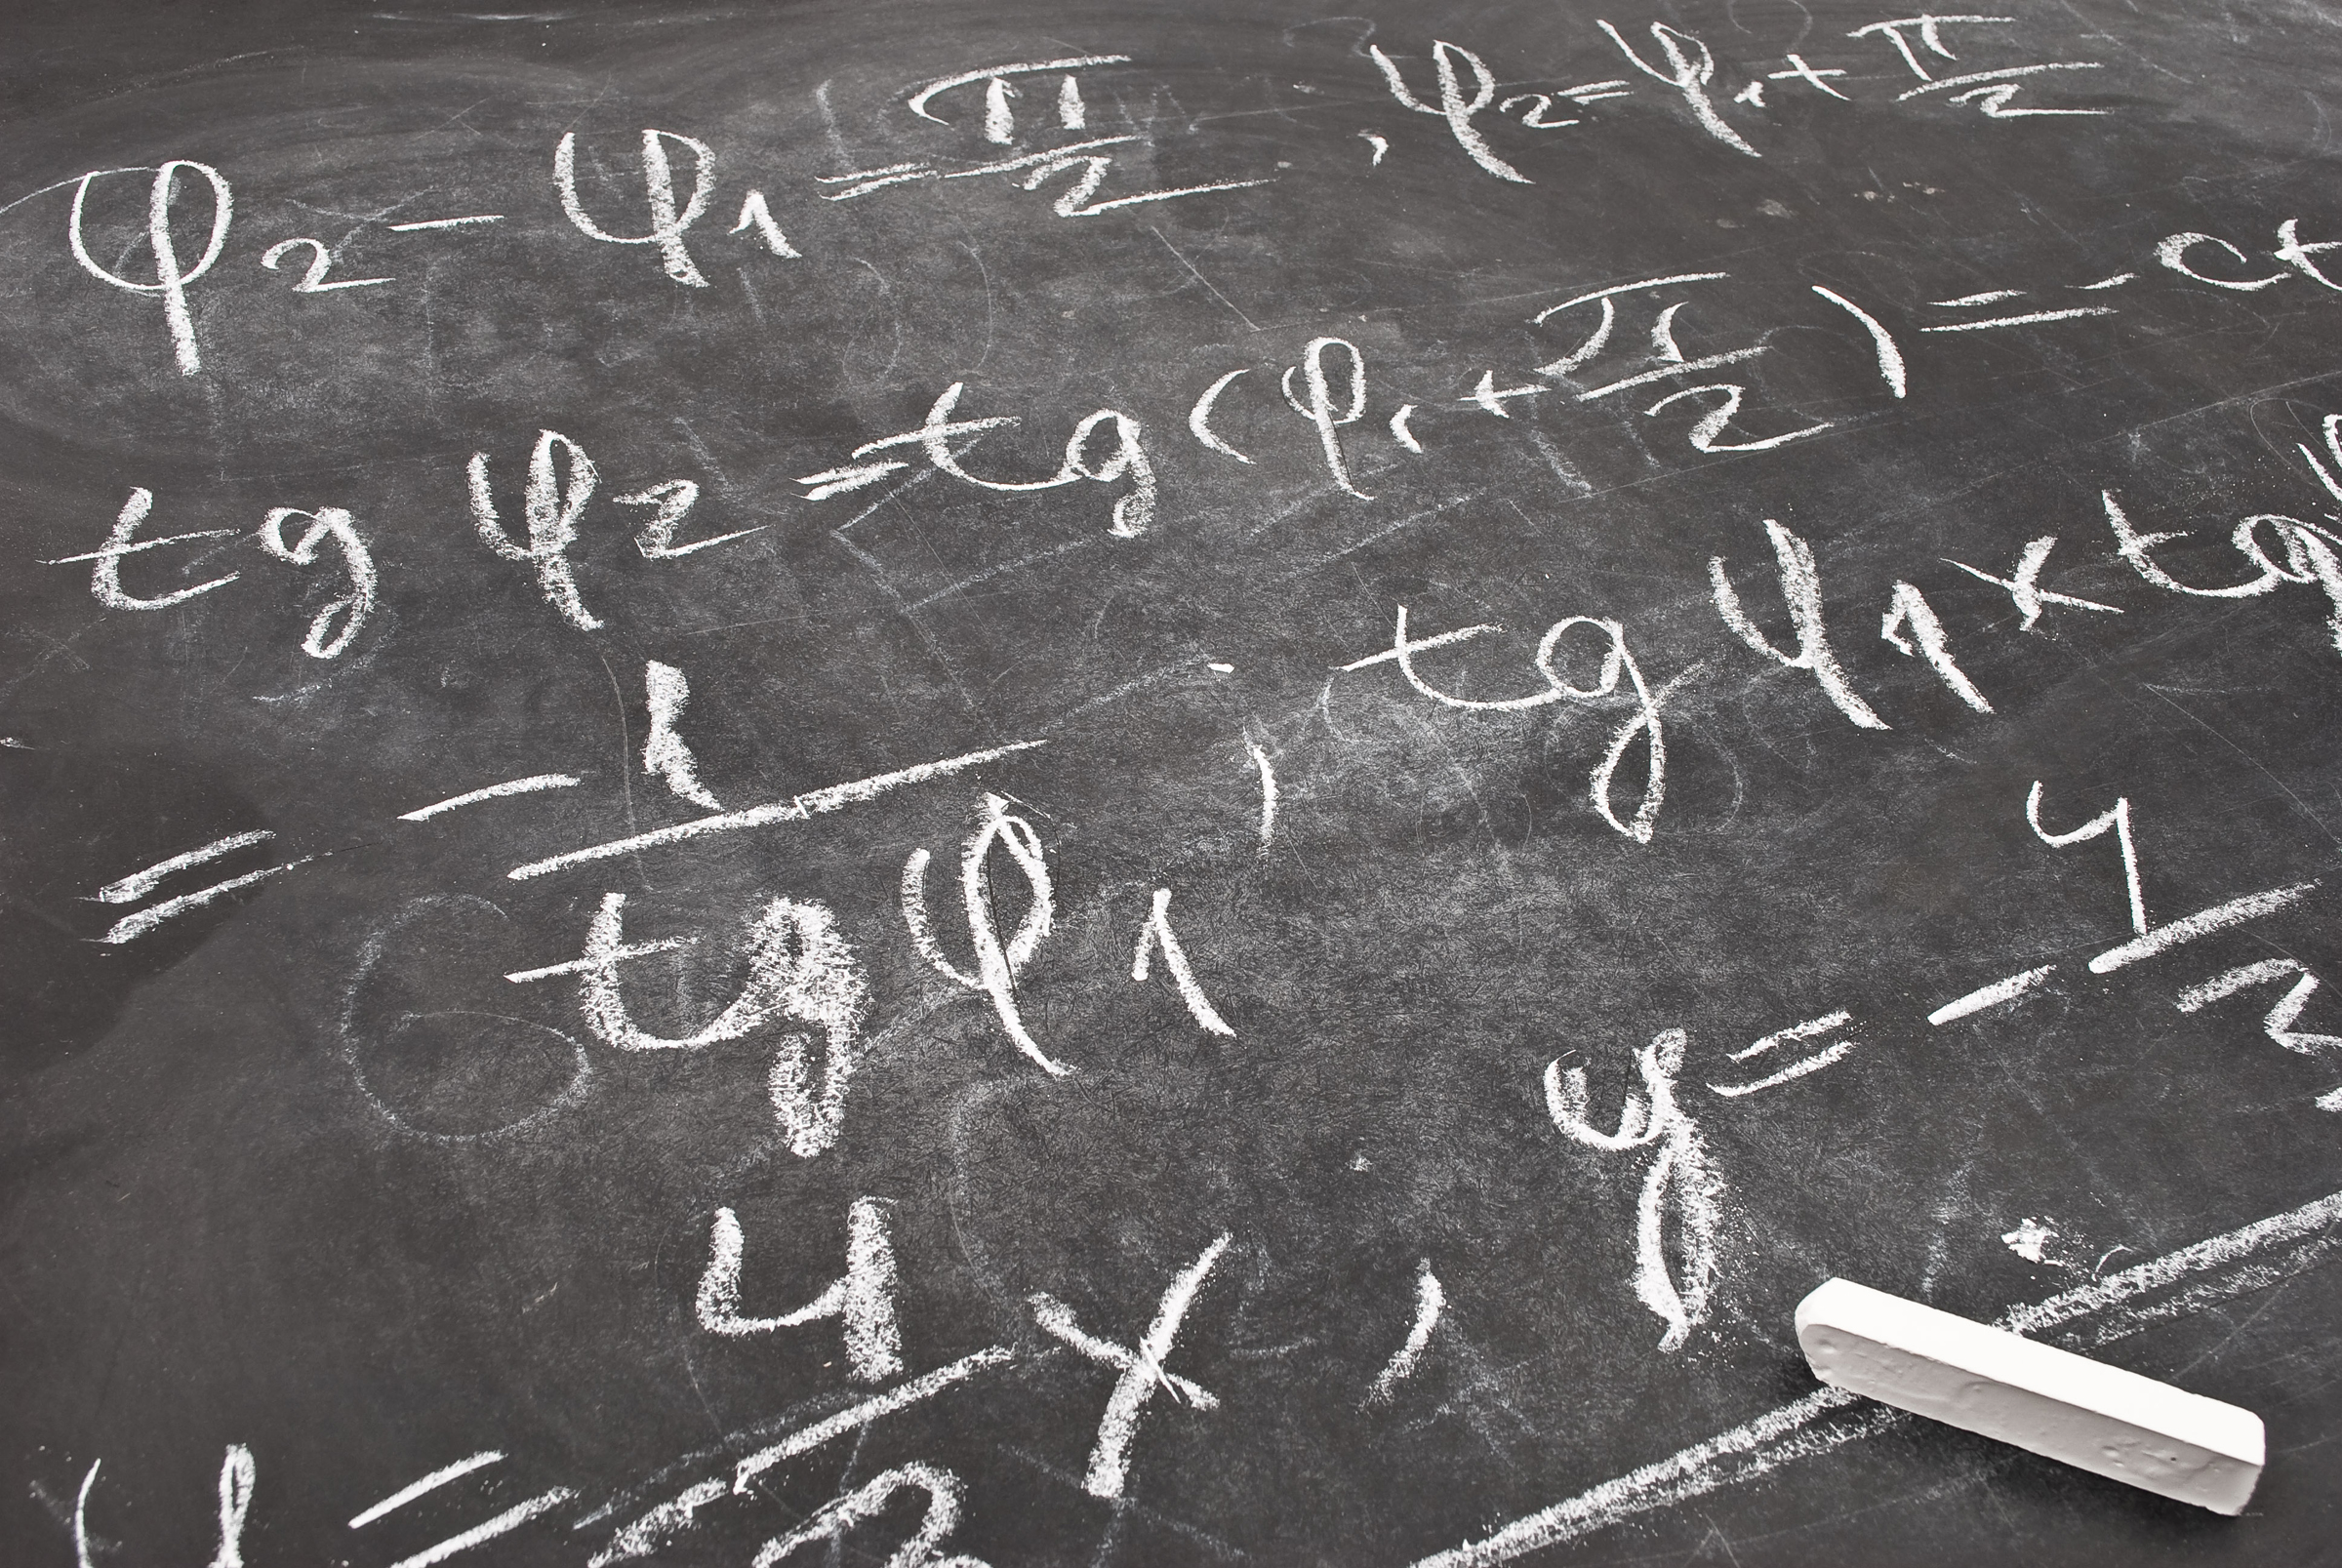 φ₂ - φ₁ = π/2 , φ₂ = φ₁ + π/2
tg φ₂ = tg (φ₁ + π/2) = - ct
= - 1/tg φ₁ , tg φ₁ × tg φ
4/3 x , y = - 4/3